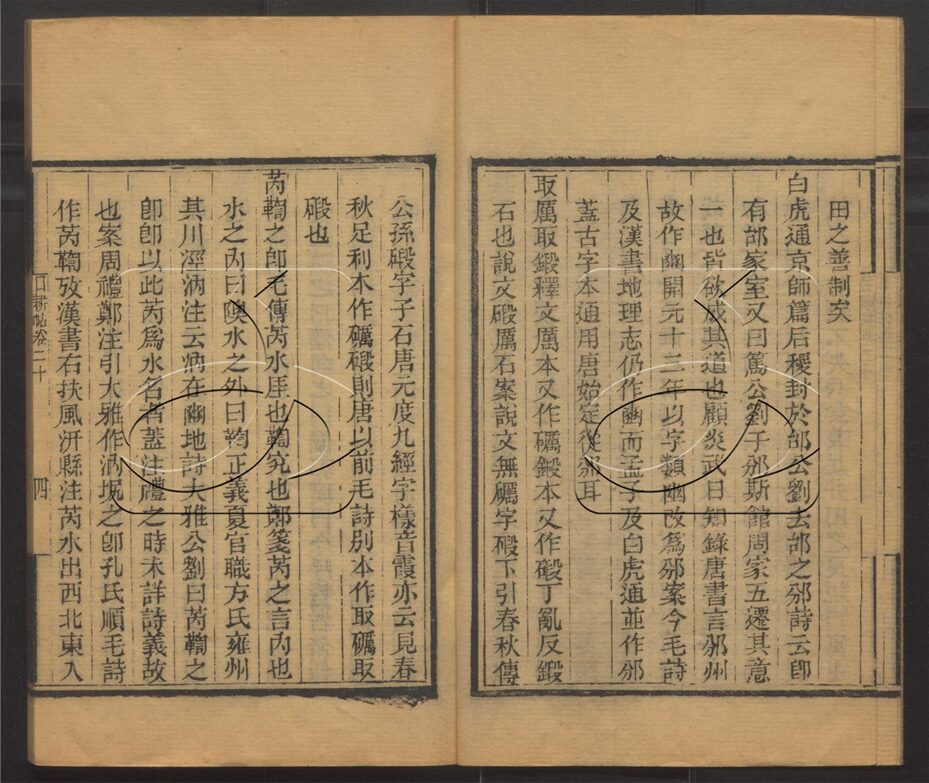 田之善制矣
白虎通京師篇后稷封於邰公劉去邰之邠詩云卽
有邰家室又曰篤公劉于邠斯館周家五遷其意
一也皆欲成其道也顧炎武日知錄唐書言邠州
故作豳開元十三年以字類幽改爲邠案今毛詩
及漢書地理志仍作豳而孟子及白虎通並作邠
蓋古字本通用唐始定從邠耳
取厲取鍛釋文厲本又作礪鍛本又作碫丁亂反鍛
石也說文碫厲石案說文無礪字碫下引春秋傳
公孫碫字子石唐元度九經字樣音霞亦云見春
秋足利本作礪碫則唐以前毛詩別本作取礪取
碫也
芮鞫之卽毛傳芮水厓也鞫究也鄭箋芮之言內也
水之內曰隩水之外曰鞫正義夏官職方氏雍州
其川涇汭注云汭在豳地詩大雅公劉曰芮鞫之
卽卽以此芮爲水名者蓋注禮之時未詳詩義故
也案周禮鄭注引大雅作汭坭之卽孔氏順毛詩
作芮鞫攷漢書右扶風汧縣注芮水出西北東入
口耕帖卷二十
四